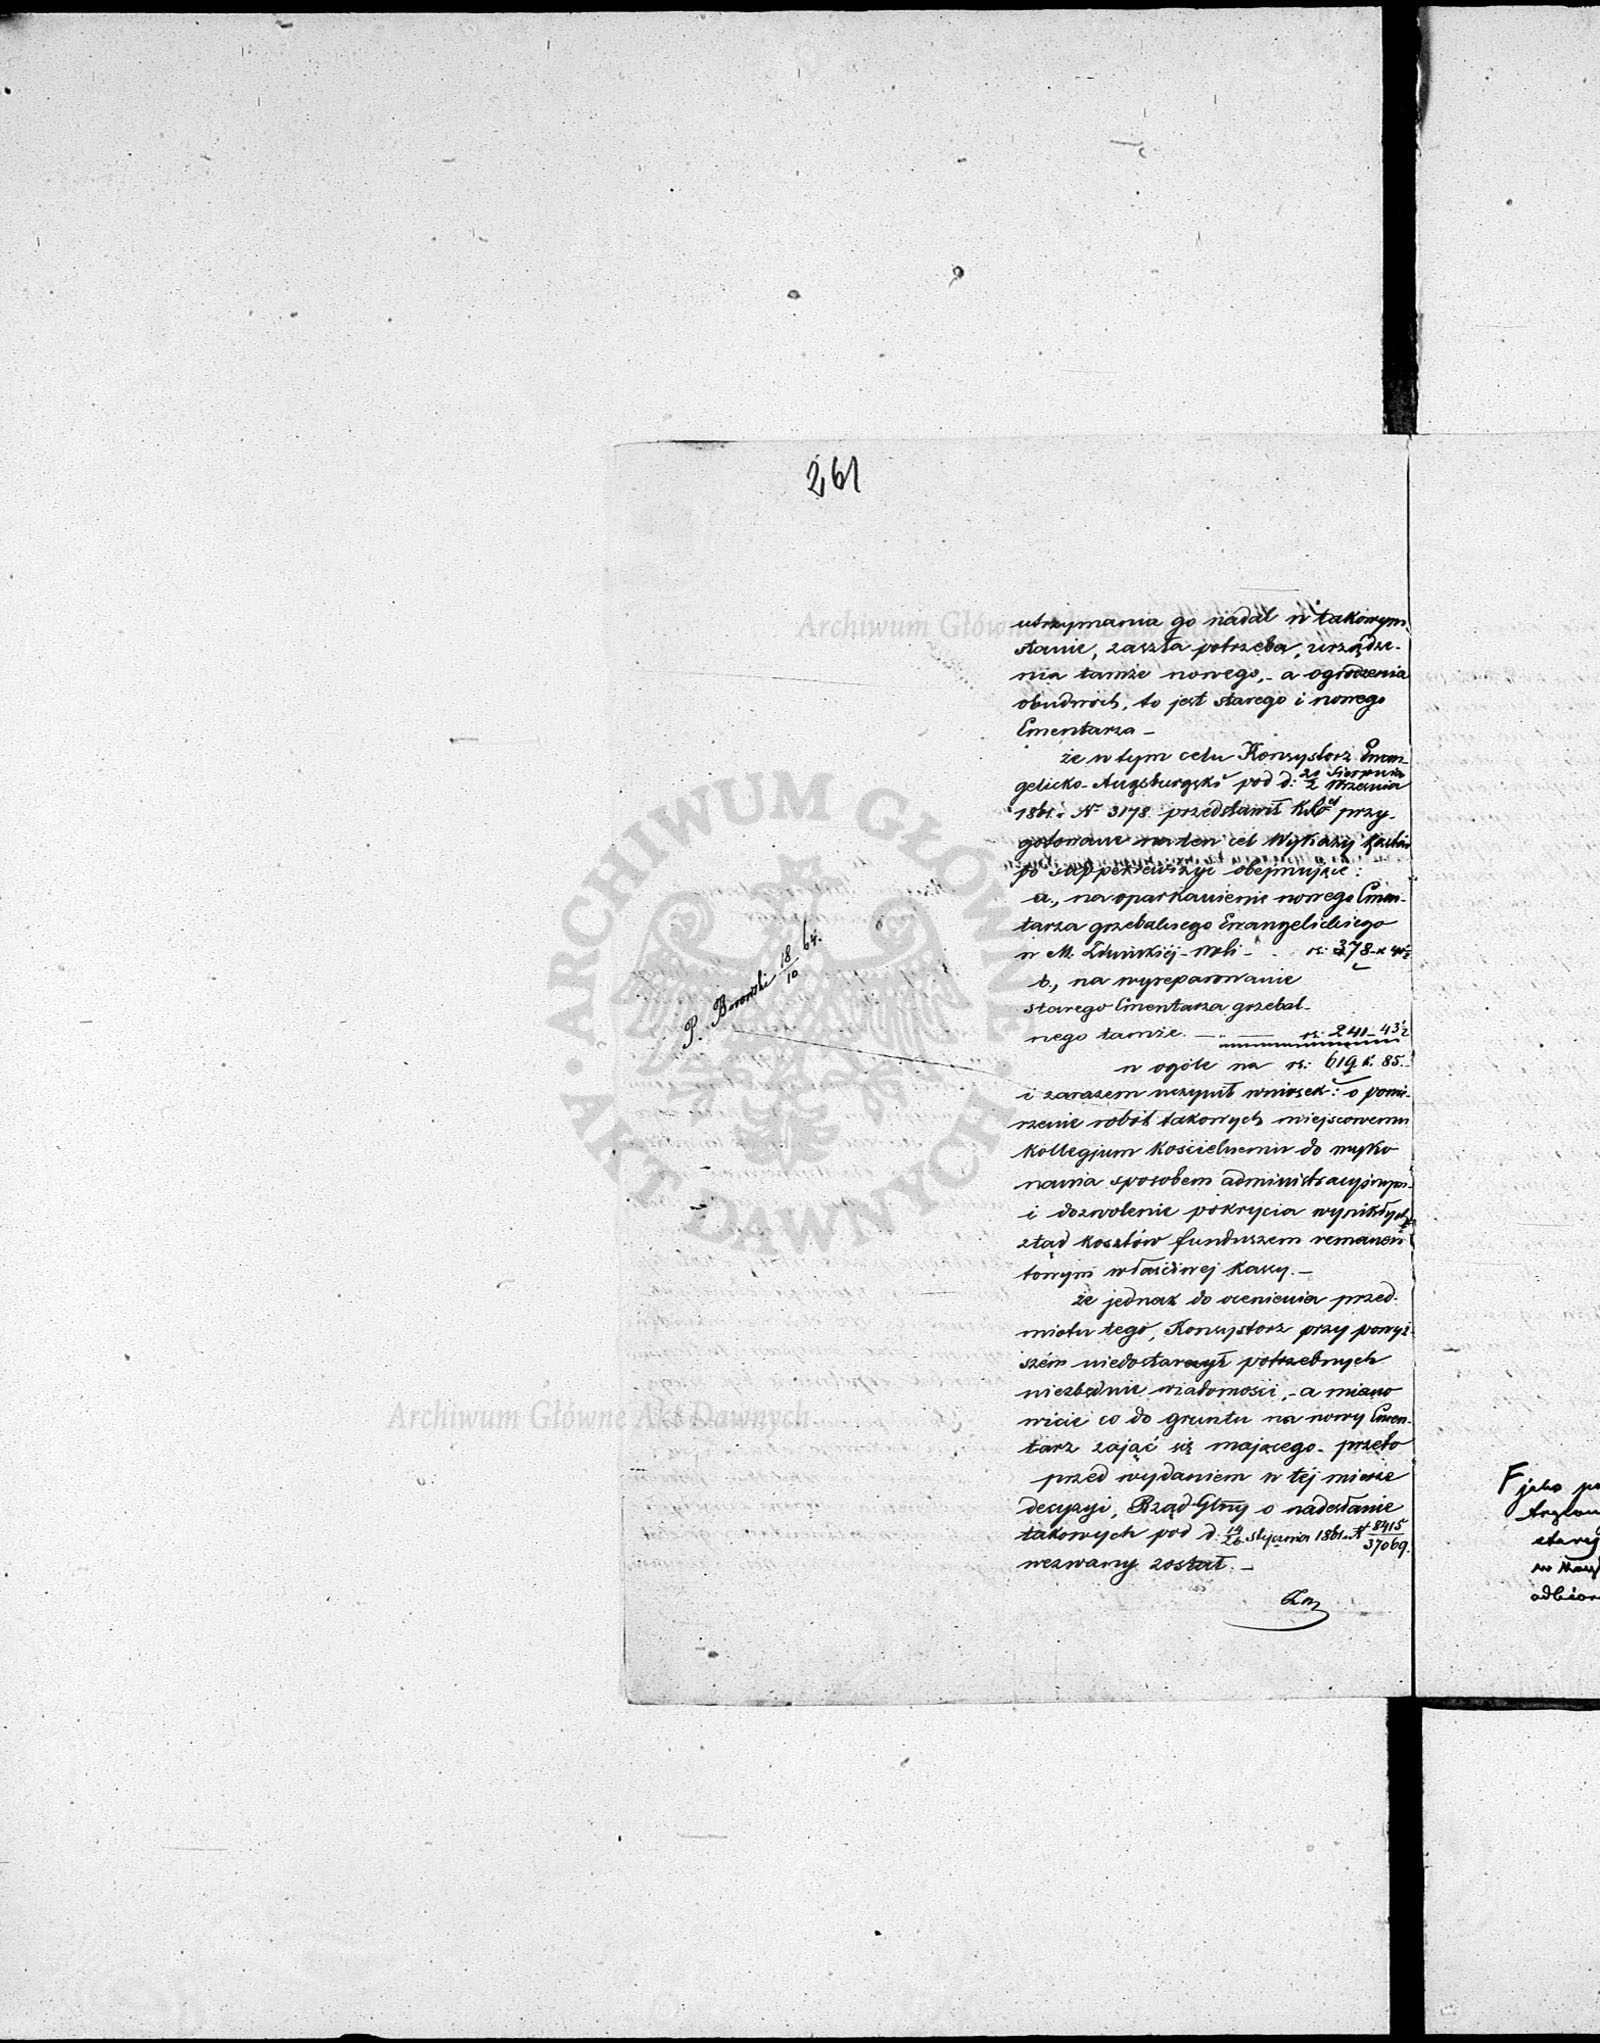 261
utrzymania go nadal w takowym
stanie, zaszła potrzeba, urządze-
nia tamże nowego, - a ogrodzenia
obudwóch, to jest starego i nowego
Cmentarza -
że w tym celu Konsystorz Ewan-
gelicko-Augsburgski pod d: 21 Sierpnia / 2 Września
1861. r. № 3178. przedstawił przy-
gotowane na ten cel Wykazy Kosztów
po obejmujące:
a., na oparkanienie nowego Cmen-
tarza grzebalnego Ewangelickiego
w M. Zduńskiej-Woli - . rs: 378 k 41½
b., na wyreparowanie
starego Cmentarza grzebal-
nego tamże. — rs: 241 - 43½
w ogóle na rs: 619 k. 85.
i zarazem uczynił wniosek: o powie-
rzenie robót takowych miejscowemu
Kollegjum Kościelnemu do wyko
nania sposobem administracyjnym
i dozwolenie pokrycia wynikłych
ztąd kosztów funduszem remanen
towym właściwej Kassy. —
że jednak do ocenienia przed-
miotu tego, Konsystorz przy powyż-
szém niedostarczył potrzebnych
niezbędnie wiadomości, - a miano
wicie co do gruntu na nowy Cmen-
tarz zająć się mającego - przeto
przed wydaniem w tej mierze
decyzyi, Rząd Głny o nadesłanie
takowych pod d. 14/26 Stycznia 1861 r. № 8415/37069.
wezwany został. —
P. Borowski 18/10 64.
F jako
stary
Archiwum Główne Akt Dawnych
Archiwum Główne Akt Dawnych
ARCHIWUM GŁÓWNE · AKT DAWNYCH ·